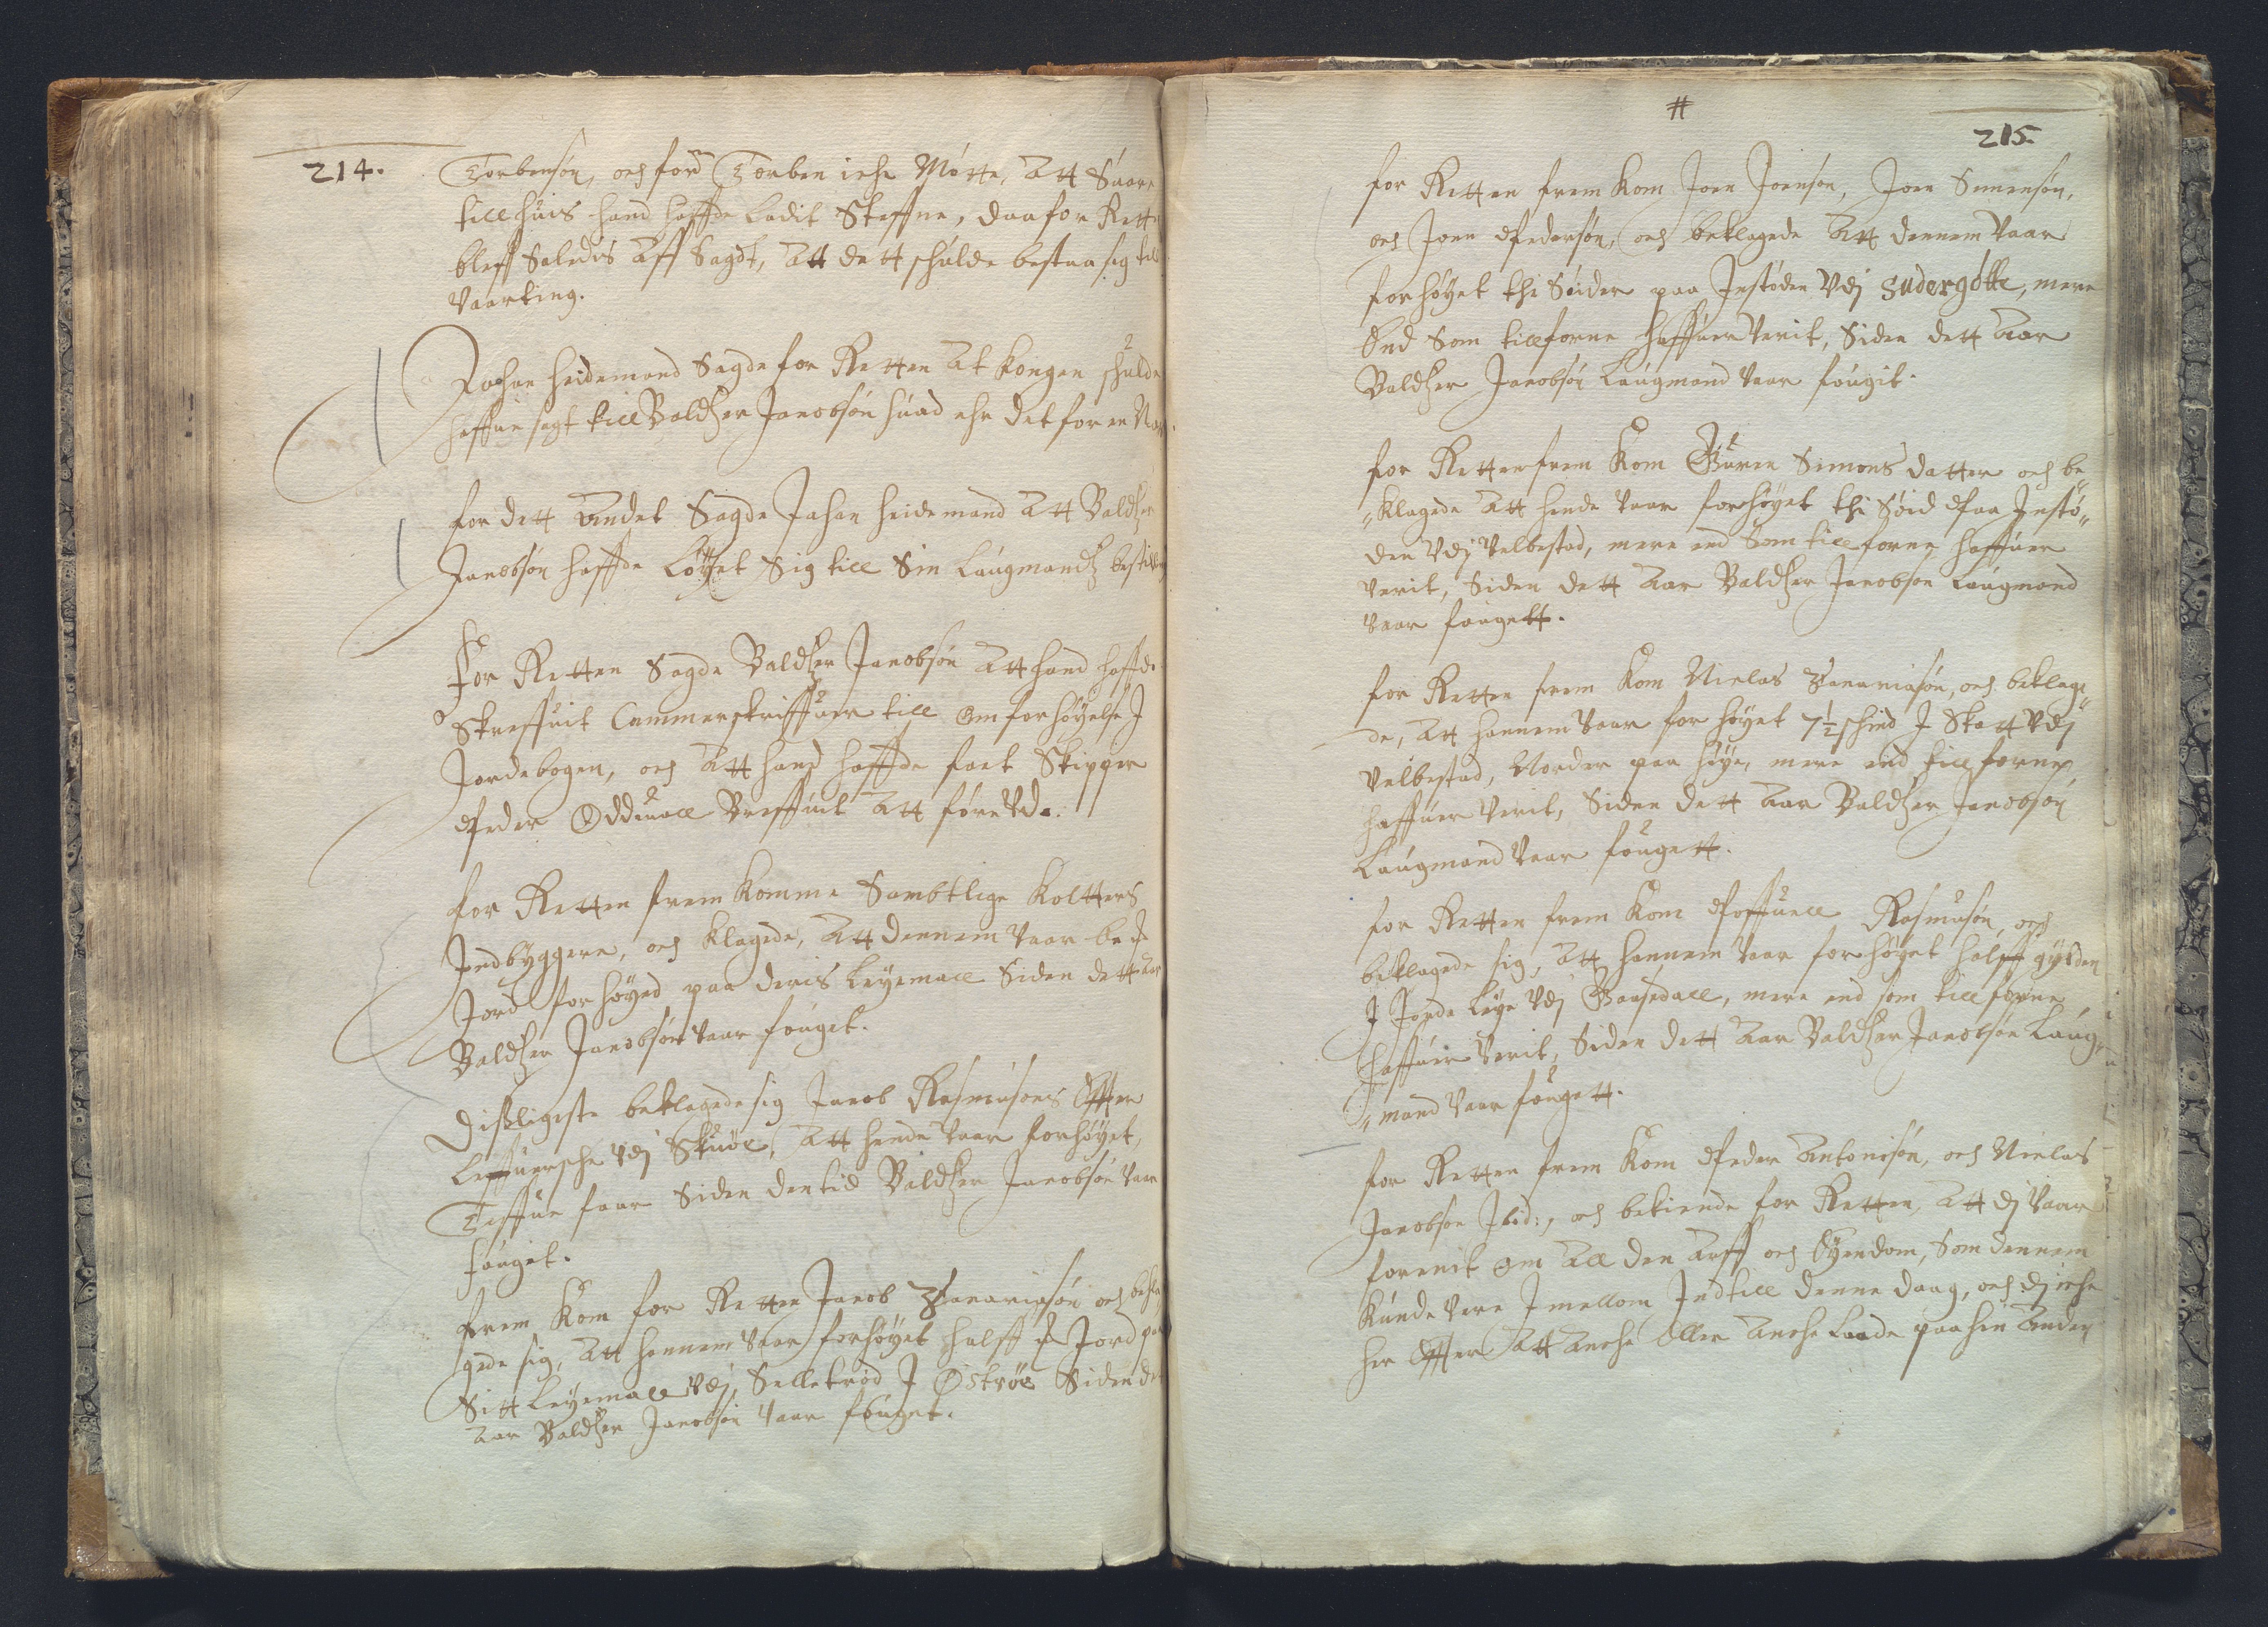 214.
Torbensøn, och ford Torben iche Møtte, Att Suare
till huis hand haffde ladit Steffne, daa for Rette
bleff Saledis Aff Sagdt, Att dett schulde bestaa sig till
Vaarting.
Johan heidemand Sagde for Retten At kongen schulde
haffue sagt till Baldtzer Jacobsøn huad ehr det for en
for dett Andet Sagde Johan heidemand Att Baldtzer
Jacobsøn haffde Løyet Sig till Sin Laugmandtz
For Retten Sagde Baldtzer Jacobsøn Att hand haffde
Skreffuit Cammerskriffuer till om forhøyelse J
Jordebogen, och Att hand haffde faaet Skipper
Peder Oddeuall Breffuit Att føre Vd.
for Retten frem komme Sambtlige Koltters
Jndbyggere, och klagede, Att dennem Vaar
Jord forhøyed paa deris Leyemall Siden dett Aar
Baldtzer Jacobsøn Vaar fouget.
Disligeste beklagede sig Jacob Rasmusøns Effter
Leffuersche Vdj Skuøe, Att hende Vaar forhøyet,
Toffue faar Siden den tid Baldtzer Jacobsøn Vaar
fouget.
frem kom for Retten Jacob Zacariasøn och bekla
gede sig, Att hannem Vaar forhøyet halff Jord paa
Sitt Leyemall Vdj Selletrod J Østrøe Siden dett
Aar Baldtzer Jacobsøn Vaar fouget.
#
215.
for Retten frem kom Joen Joensøn, Joen Simensøn,
och Joen Pedersøn, och beklagede Att dennem Vaar
forhøyet thi Søider paa Jnstøden Vdj Sudergótte, mere
End Som tillforne haffuer Verit, Siden dett Aar
Baldtzer Jacobsøn Laugmand Vaar fougit.
for Retten frem kom Guren Simons datter och be„
„klagede Att hende Vaar forhøyet thi Søid Paa Jnstø„
den Vdj Velbestad, mere end Som tillforne haffuer
Verit, Siden dett Aar Baldtzer Jacobsøn Laugmand
Vaar fougett.
for Retten frem kom Nielas Zacariasøn, och beklage„
de, Att hannem Vaar for høyet 7½ schind J Skatt Vdj
Velbestad, Norder paa høye, mere end tillforne
haffuer Verit, Siden dett Aar Baldtzer Jacobsøn
Laugmand Vaar fougett.
for Retten frem kom Poffuell Rasmusøn, och
beklagede sig, Att hannem Vaar forhøyet halff gylden
J Jorde Leye Vdj Gaasedall, mere end som tillforne
haffuer Verit, Siden dett Aar Baldtzer Jacobsøn Laug„
„mand Vaar fougett.
for Retten frem kom Peder Antonisøn, och Nielas
Jacobsøn Jbid:, och bekiende for Retten, Att dj Vaar
forenit om All den Arff och Eyendom, Som dennem
kunde Vere J mellom Jndtill denne daag, och dj iche
her Effter Att Anche Eller Anche Laade paa hin Anden